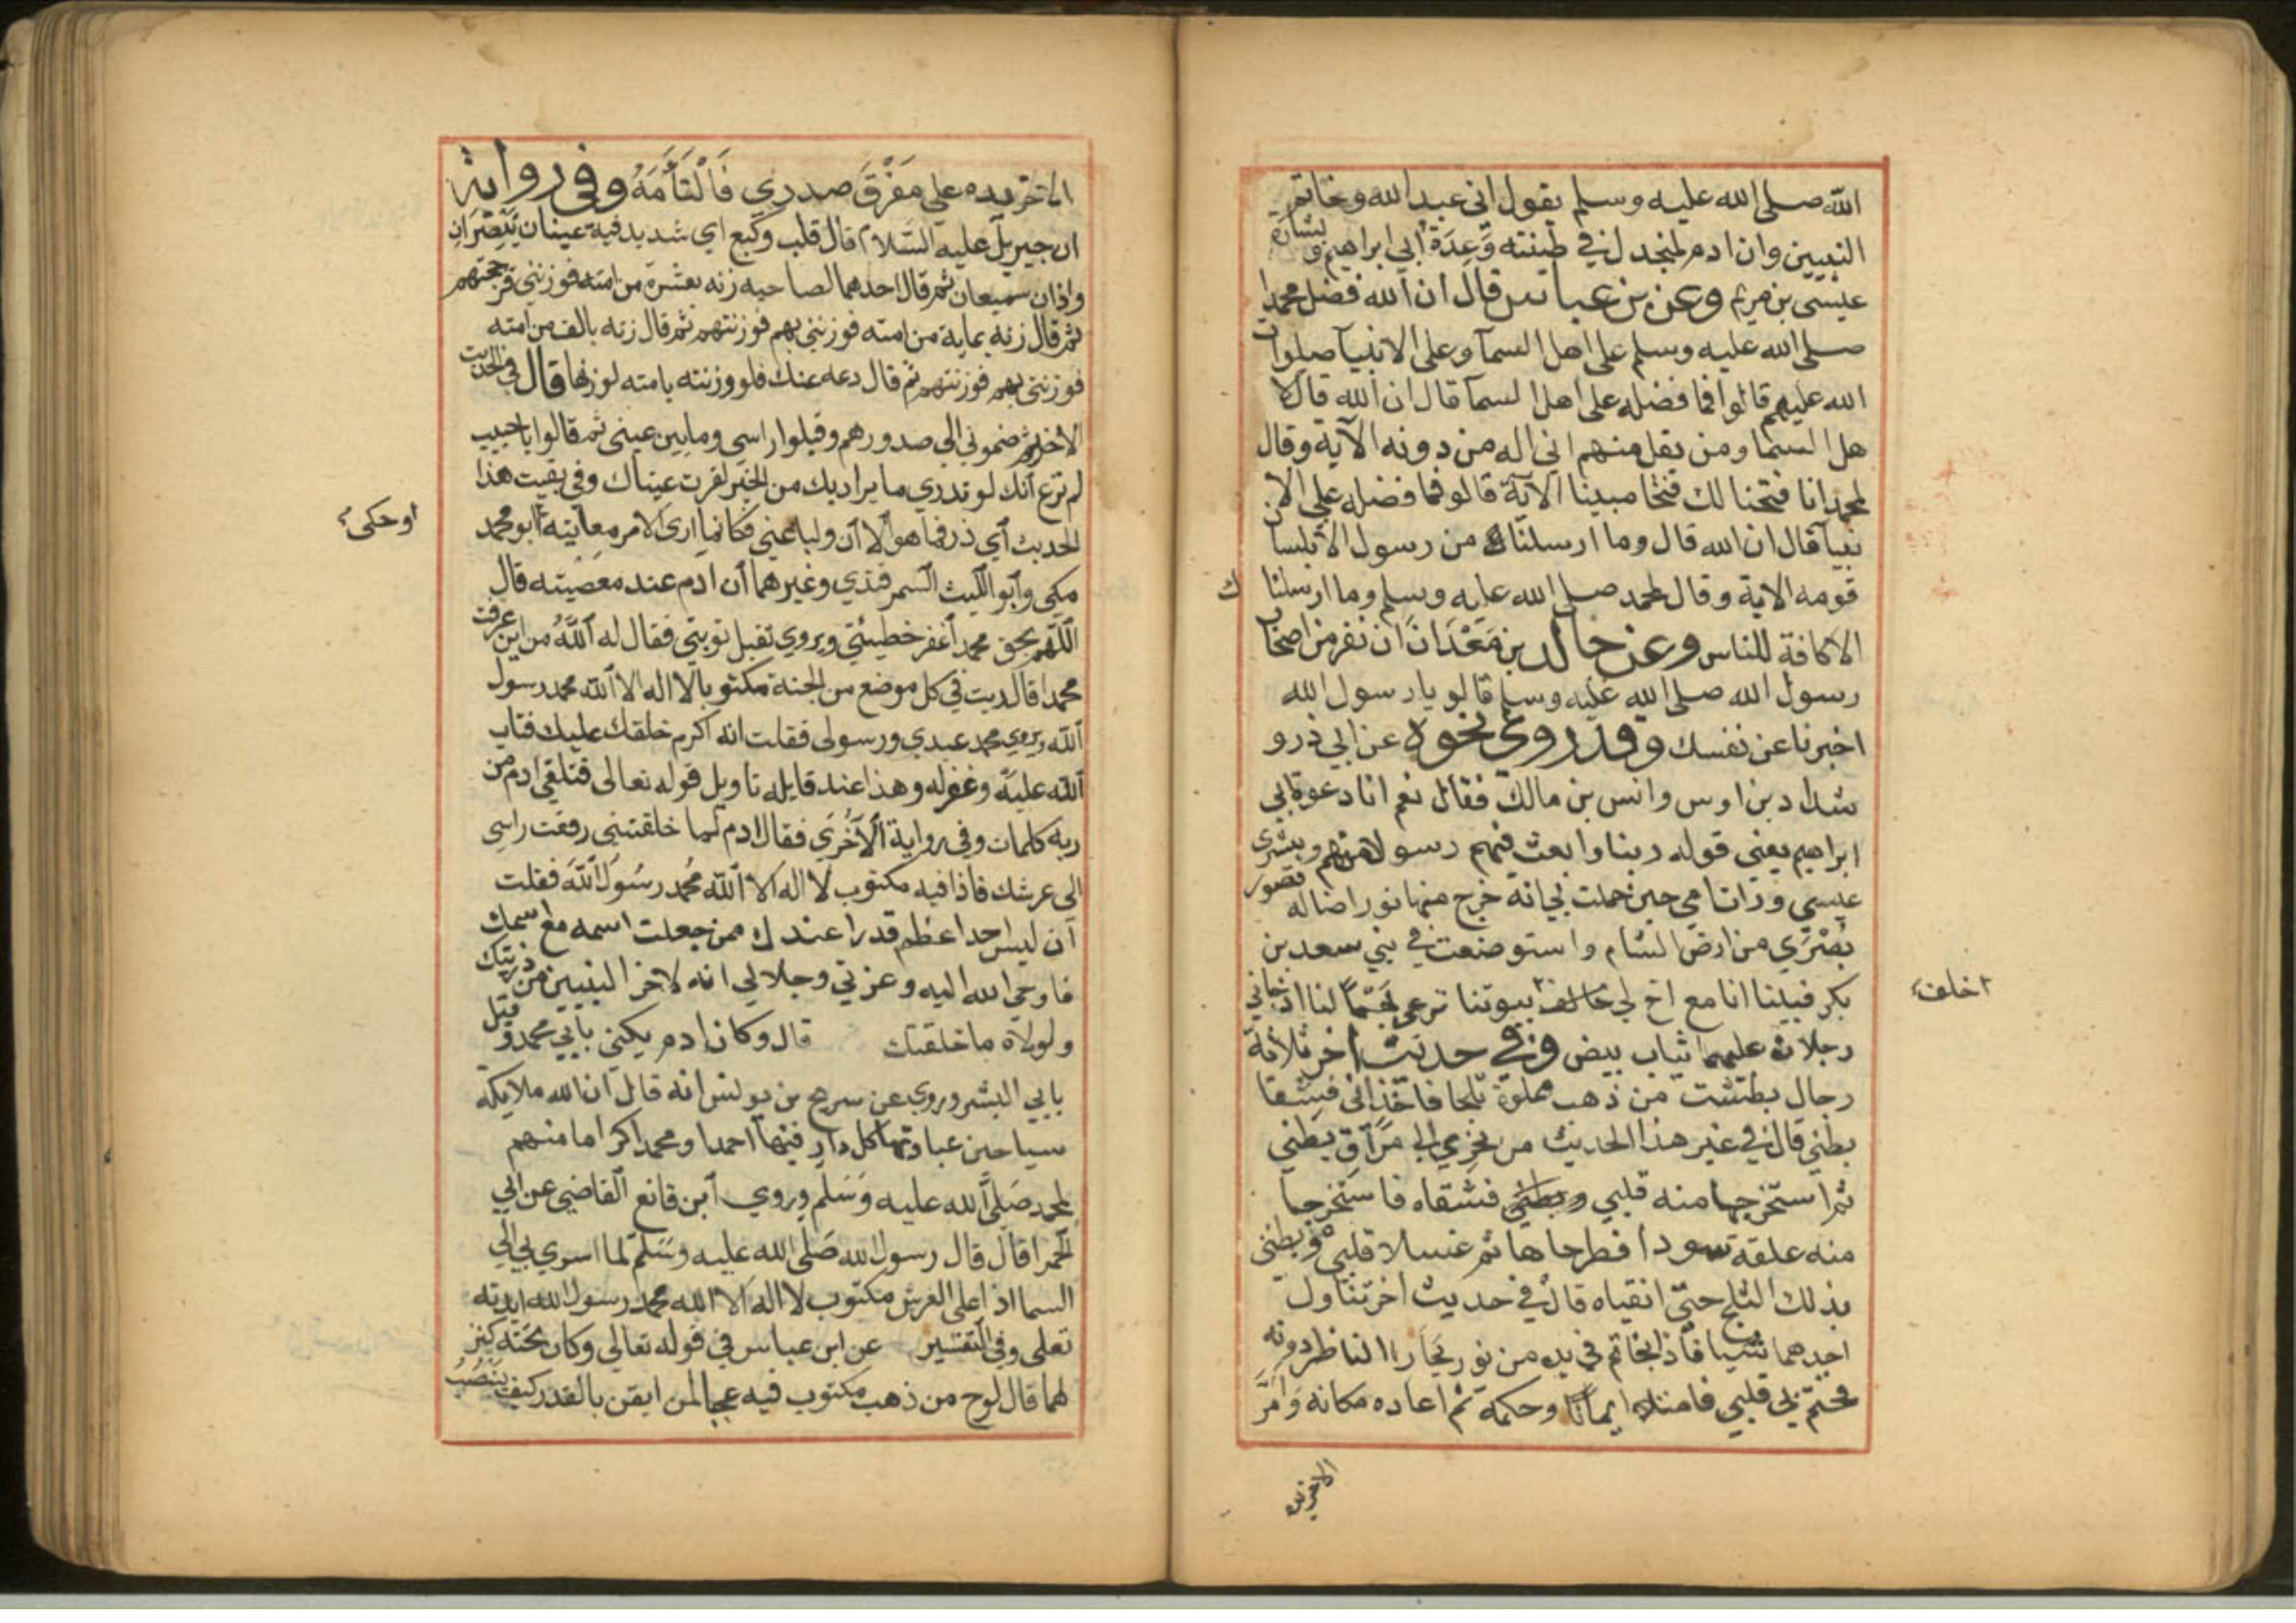 الله صلى الله عليه وسلم يقول اني عبد الله وخاتم
النبيين وان ادم لمنجدل في طينته وَعِدَةُ ابي ابراهيم و بشارة
عيسى بن مريم وعن بن عباس قال ان الله فضل محمدا
صلى الله عليه وسلم على اهل السمآ وعلى الانبيآ صلوات
الله عليهم قالوا فما فضله على اهل السمآ قال ان الله قال لا
هل السما ومن يقل منهم اني اله من دونه الآية وقال
لمحمد انا فتحنا لك فتحا مبينا الآية قالو فما فضله على الان
بيآ قال ان الله قال وما ارسلنا من رسول الا بلسا
قومه الاية وقال لمحمد صلى الله عليه وسلم وما ارسلنا ك
الا كافة للناس وعن خالد بن مَعْدَان ان نفر من اصحاب
رسول الله صلى الله عليه وسلم قالو يا رسول الله
اخبرنا عن نفسك وقد روي نحوه عن ابي ذر و
شداد بن اوس وانس بن مالك فقال نعم انا دعوة ابي
ابراهيم يعني قوله ربنا وابعث فيهم رسولا منهم وبشرى
عيسى ورات امي حين حملت بي انه خرج منها نور اضا له قصور
بُصْرَي من ارض الشام واستوضعت في بني سعد بن
بكر فبينا انا مع اخ لي خلف بيوتنا نرعى بَهْمًا لنا اذ جاني
اخلف
رجلان عليهما ثياب بيض وفي حديث اخر ثلاثة
رجال بطشت من ذهب مملوة ثلجا فاخذاني فشقا
بطني قال في غير هذا الحديث من نحري الى مَرَآقِّ بطني
ثم استخرجها منه قلبي وبطني فشقاه فاستخرجا
منه علقة سودا فطرحاها ثم غسلا قلبي وبطني
بذلك الثلج حتى انقياه قال في حديث اخر تناول
احدهما شيا فاذا بخاتم في يده من نور يحار الناظر دونه
فختم به قلبي فامتلا ايمانا وحكمة ثم اعاده مكانه وامَرَّ
الاخر يده
الاخر يده علي مَفْرَقَ صدري فَالْتَأَمَهُ وفي رواية
ان جبريل عليه السّلام قال قلب وكيع اي شديد فيه عينان تبصَرانِ
واذان سميعان ثم قال احدهما لصاحبه زنه بعشرة من امته فوزنني فرجحتهم
ثم قال زنه بماية من امته فوزنني بهم فوزنتهم ثم قال زنه بالف من امته
فوزنني بهم فوزنتهم ثم قال دعه عنك فلو وزنته بامته لوزنها قال في الحديث
الاخر ثم ضموني الي صدورهم وقبلوا راسي وما بين عيني ثم قالوا يا حبيب
لم ترع انك لو تدري ما يراد بك من الخير لقرت عيناك وفي بقيت هذا
الحديث ابي ذر فما هو الا ان وليا عني فكانما ارى الامر معاينة ابو محمد
او حكى
مكي وابو الليث السمرقندي وغيرهما ان ادم عند معصيته قال
اللّهم بحق محمد اغفر خطيئتي ويروي تقبل توبتي فقال له اللّهُ من اين عرفت
محمدا قال ريت في كل موضع من الجنة مكتوبا لا اله الا اللّه محمد رسول
اللّه ويروي محمد عبدي ورسولي فقلت انه اكرم خلقك عليك فتاب
اللّه عليه وغفر له وهذا عند قايله تاويل قوله تعالى فتلقي ادم من
ربه كلمات وفي رواية الآخُرَي فقال ادم لما خلقتني رفعت راسي
الى عرشك فاذا فيه مكتوب لا اله الا اللّه مُحمد رسُول اللّه فقلت
ان ليس احد اعظم قدرا عندك ممن جعلت اسمه مع اسمك
فاوحي الله اليه وعزتي وجلالي انه لاخر النبيين من ذريتك
ولولاه ما خلقتك قال وكان ادم يكني بابي محمد و قيل
بابي البشر وروي عن سريج بن يونس انه قال ان لله ملايكة
سياحين عبادتها كل دار فيها احمدا ومحمد اكراما منهم
لمحمد صَلَّي الله عليه وَسَلم وروي ابن قانع القاضي عن ابي
الحمرا قال قال رسول الله صَلى الله عليه وسَلم لما اسري بي الي
السما اذا على العرش مكتوب لا اله الا الله محمد رسول الله ايدته
تعلى وفي التفسير عن ابن عباس في قوله تعالي وكان تحته كنز
لهما قال لوح من ذهب مكتوب فيه عجبا لمن ايقن بالقدر كيف ينصَبُ